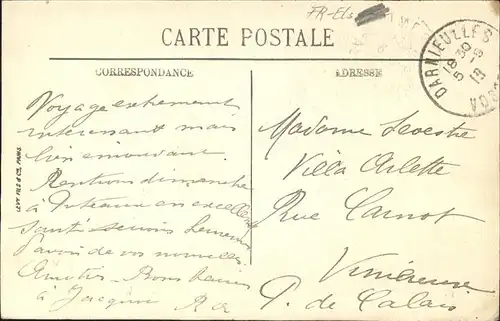 FR-Els
CARTE POSTALE
CORRESPONDANCE
ADRESSE
DARNIEULLES
18 30
5 -8
19
VOSGES
LEVY FILS & Cie, PARIS
Voyage extrêmement
intéressant mais
bien émouvant.
Rentrons dimanche
à Puteaux en excellente
santé serions heureux
d'avoir de vos nouvelles
Amitiés. Bons baisers
à Jacques
Madame Levestre
Villa Arlette
Rue Carnot
Wimereux
P. de Calais